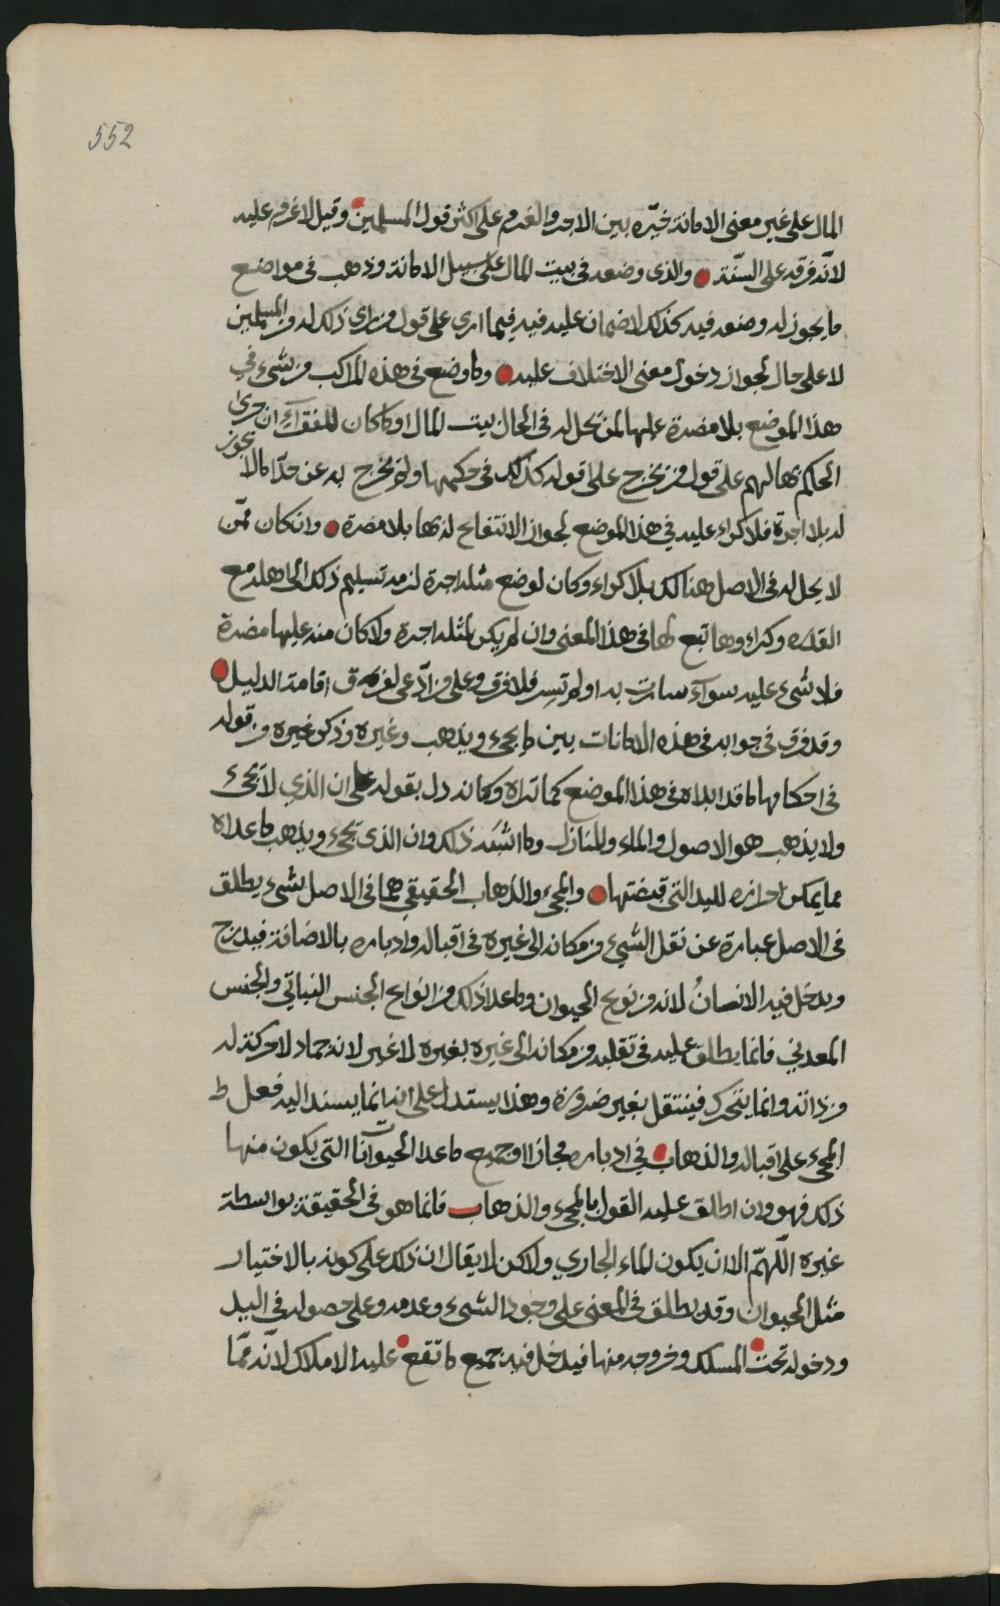 552
المال على غير معنى الامانة خيّره بين الاجر والغرم على اكثر قول المسلمين وقيل لا غرم عليه
لانّه فرّقه على السنّة والذي وضعه في بيت المال على سبيل الامانة وذهب في مواضع
ما يجوز له وضعه فيه كذلك لا ضمان عليه فيه فيما ارى على قول من راى ذلك له من المسلمين
لا على حال لجواز دخول معنى الاختلاف عليه وما وضع في هذه المراكب من شيء في
هذا الموضع بلا مضرة عليها لمن تحل له في الحال بيت المال او ما كان للفقراء ان جرى
الحاكم بها لهم على قول من يخرج على قوله كذلك في حكمها ولم يخرج به عن حدّ ما لا يجوز
له بلا اجرة فلا كراء عليه في هذا الموضع لجواز الانتفاع له بها بلا مضرة وان كان ممّن
لا يحل له في الاصل هنالك بلا كراء وكان لوضع مثله اجرة لزمه تسليم ذلك الى اهله مع
القدرة وكراوها تبع لها في هذا المعنى وان لم يكن لمثله اجرة ولا كان منه عليها مضرة
فلا شيء عليه سواء سارت به او لم تسر فلا فرق وعلى من ادّعى لفرق اقامة الدليل
وقد فرق في جوابه في هذه الامانات بين ما يجيء ويذهب وغيره وذكر غيره من قوله
في احكامها ما قد ابداه في هذا الموضع كما تراه وكانه دل بقوله على ان الذي لا يجيء
ولا يذهب هو الاصول والماء والمنازل وما اشبه ذلك وان الذي تجيء ويذهب ما عداه
مما يمكن احرازه لليد التي قبضتها والمجيء والذهاب الحقيقي هما في الاصل بشيء يطلق
في الاصل عبارة عن نقل الشيء من مكانه الى غيره في اقباله وادباره بالاضافة فيدرج
ويدخل فيه الانسانُ لانه من نوع الحيوان وما عدا ذلك من انواع الجنس النباتي والجنس
المعدني فانما يطلق عليه في تقلبه من مكانه الى غيره بغيره لا غير لانه جماد لا حركة له
من ذاته وانما يتحرك فينتقل بغير ضرورة وهذا يستدل على انه انما يسند اليه فعل
المجيء على اقباله والذهاب في ادباره مجازا وجميع ما عدا الحيوانات التي يكون منها
ذلك فهو وان اطلق عليه القول بالمجيء والذهاب فانما هو في الحقيقة بواسطة
غيره اللّهمّ الا ان يكون الماء الجاري ولاكن لا يقال ان ذلك على كونه بالاختيار
مثل الحيوان وقد يطلق في المعنى على وجود الشيء وعدمه وعلى حصوله في اليد
ودخوله تحت المسلك وخروجه منها فيدخل فيه جميع ما تقع عليه الاملاك لانّه ممّا